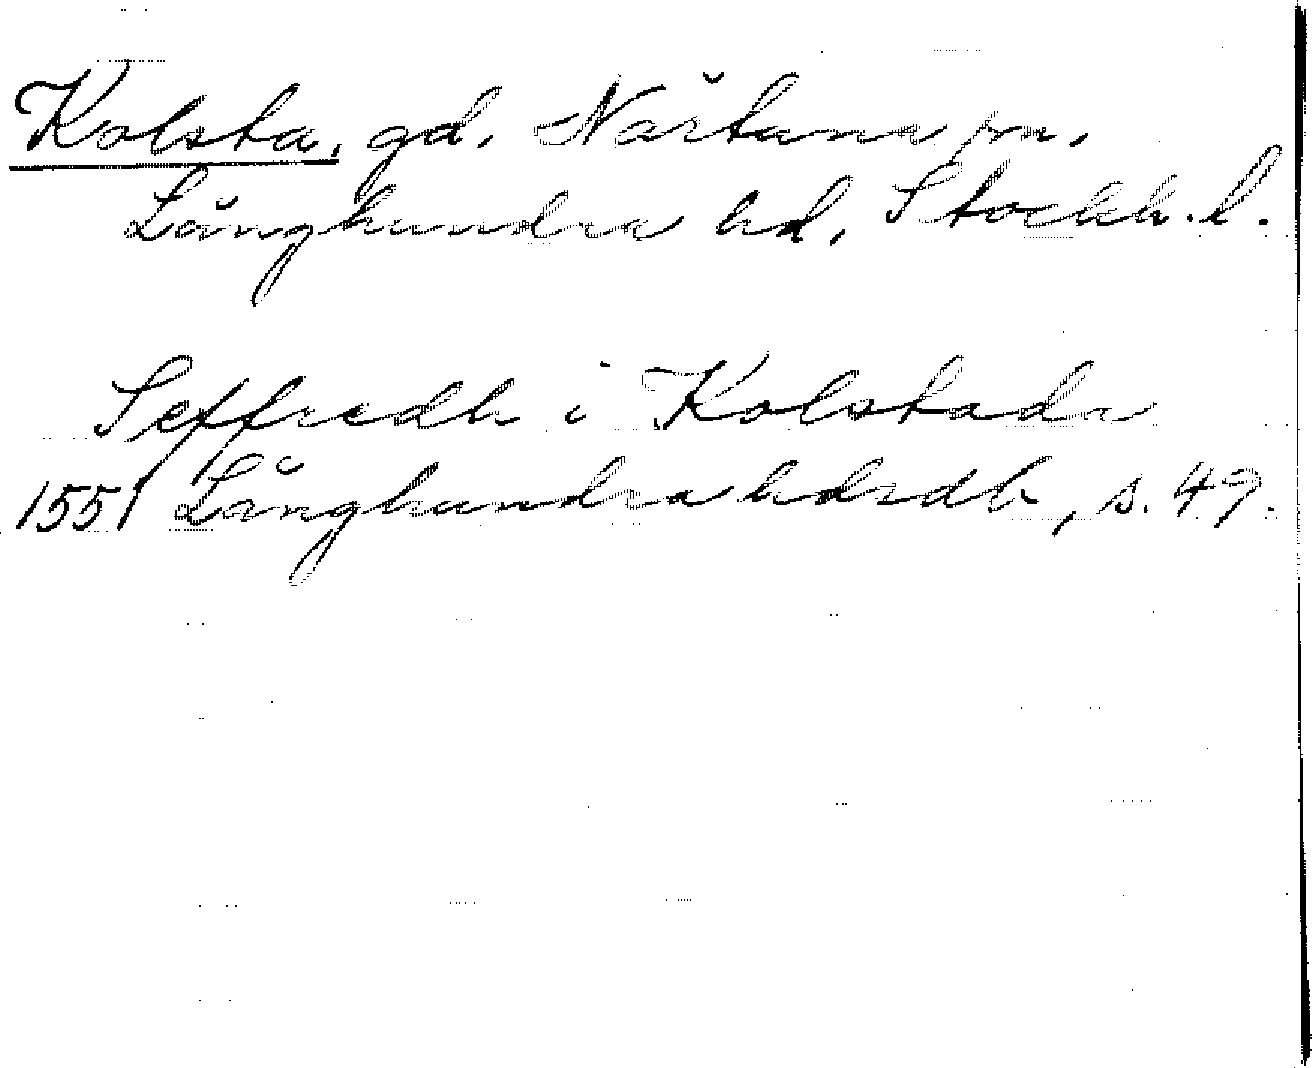 Kolsta, gd. Närtuna sn.
Långhundra hd, Stockh. l.
Seffredh i Kolstada
1551 Långhundra hdrdb, s. 49.